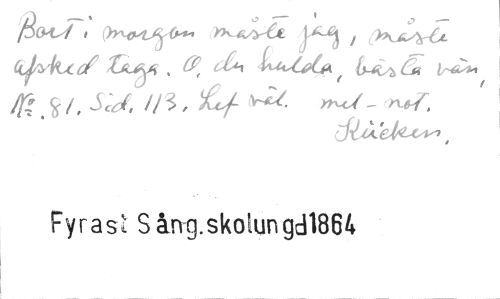 Bort i morgon måste jag, måste
afsked taga. O, du hulda, bästa vän,
No. 81. Sid. 113. Lef väl. mel-not.
Kücken.
Fyrast Sång.skolungd1864